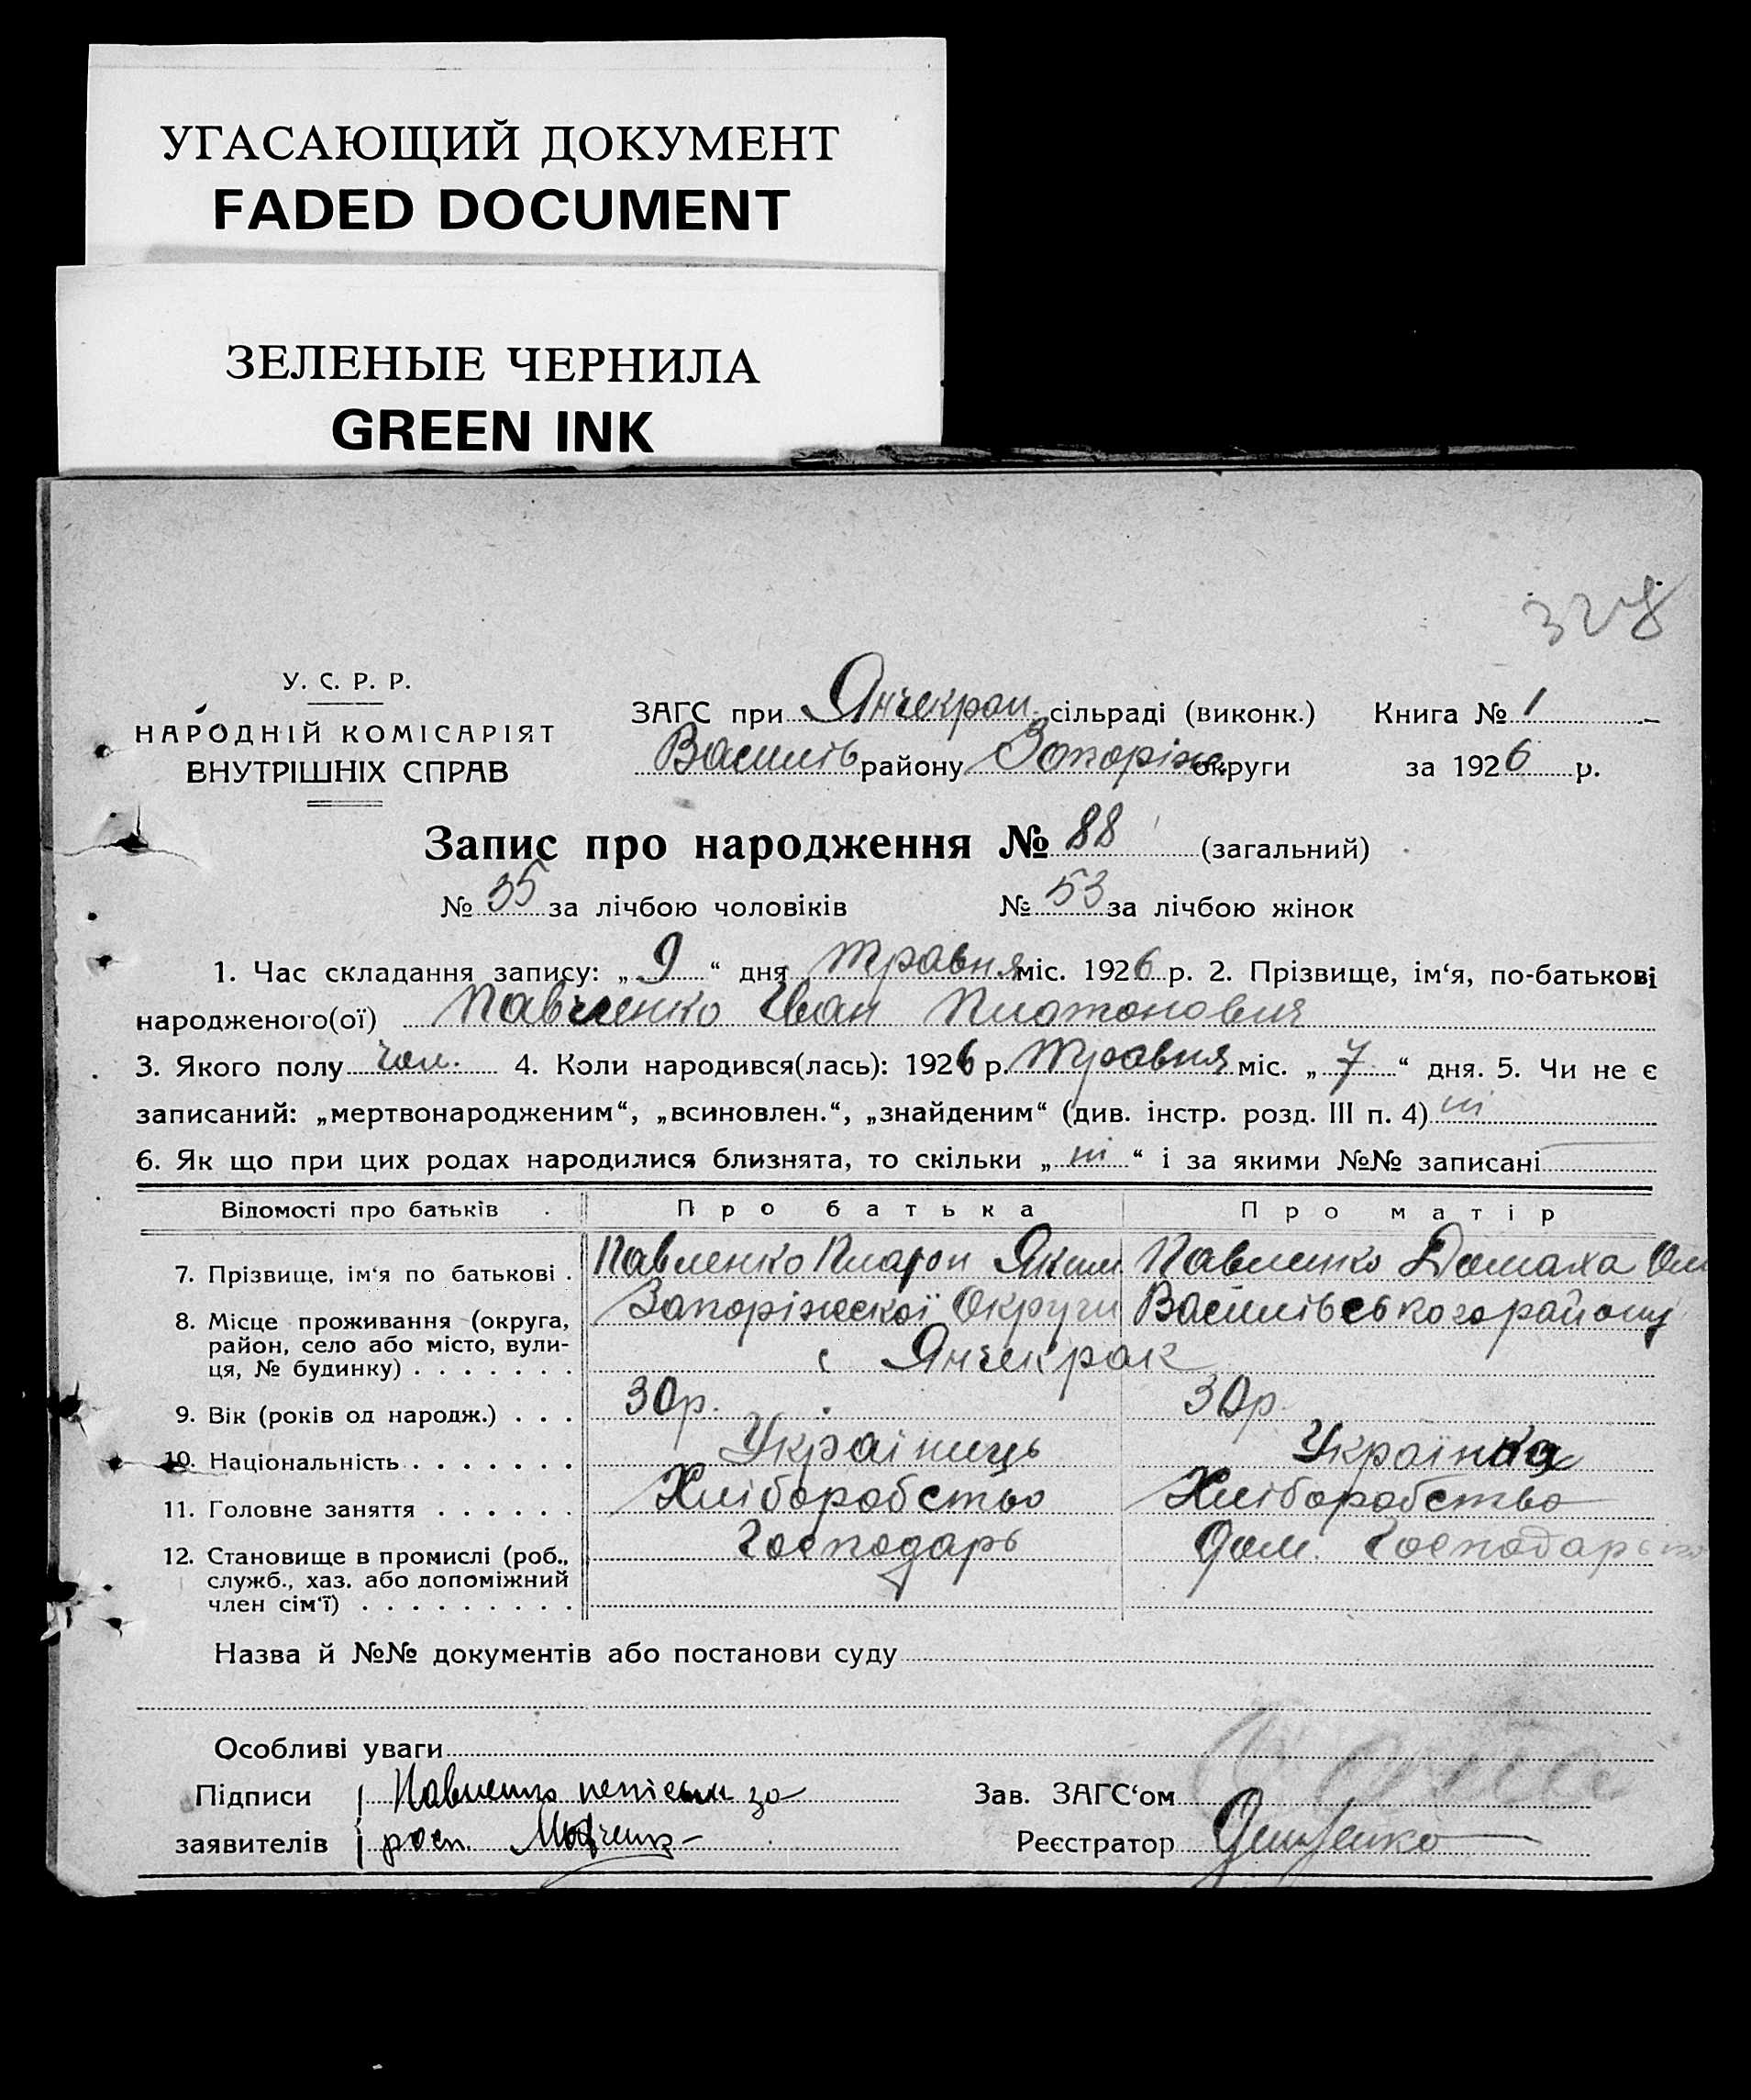 УГАСАЮЩИЙ ДОКУМЕНТ
FADED DOCUMENT
ЗЕЛЕНЫЕ ЧЕРНИЛА
GREEN INK
328
У. С. Р. Р.
НАРОДНІЙ КОМІСАРІЯТ
ВНУТРІШНІХ СПРАВ
ЗАГС при Янчекрак. сільраді (виконк.) Книга № 1
Василів району Запоріж. округи за 1926 р.
Запис про народження № 88 (загальний)
№ 35 за лічбою чоловіків № 53 за лічбою жінок
1. Час складання запису: „9“ дня травня міс. 1926 р. 2. Прізвище, ім‘я, по-батькові
народженого(ої) Павленко Іван Платонович
3. Якого полу чол. 4. Коли народився(лась): 1926 р. травня міс. „7“ дня. 5. Чи не є
записаний: „мертвонародженим“, „всиновлен.“, „знайденим“ (див. інстр. розд. III п. 4) ні
6. Як що при цих родах народилися близнята, то скільки „ні“ і за якими №№ записані
Відомості про батьків Про батька Про матір
7. Прізвище, ім‘я по батькові . Павленко Платон Яким Павленко Домаха Ом
8. Місце проживання (округа, район, село або місто, вулиця, № будинку) . . . . . . . Запоріжської Округи Василівського району
с Янчекрак
9. Вік (років од народж.) . . . 30р. 30р.
10. Національність . . . . . . . Українець Українка
11. Головне заняття . . . . . . Хліборобство Хліборобство
12. Становище в промислі (роб., служб., хаз. або допоміжний член сім‘ї) . . . . . . . . . Господарь Дом. Господарь
Назва й №№ документів або постанови суду
Особливі уваги
Підписи Павленко неписьм за Зав. ЗАГС‘ом
заявителів росп. Реєстратор